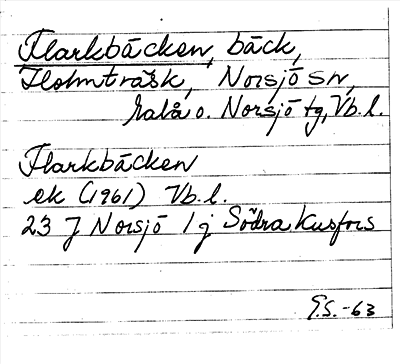 Flarkbäcken, bäck,
Holmträsk, Norsjö sn,
Malå o. Norsjö tg, Vb.l.
Flarkbäcken
ek (1961) Vb.l.
23 J Norsjö 1 j Södra Kusfors
G.S.-63